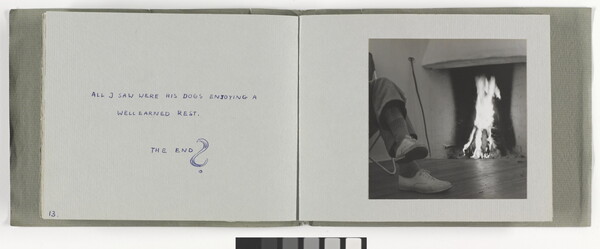 ALL I SAW WERE HIS DOGS ENJOYING A
WELL EARNED REST.
THE END ?
13.